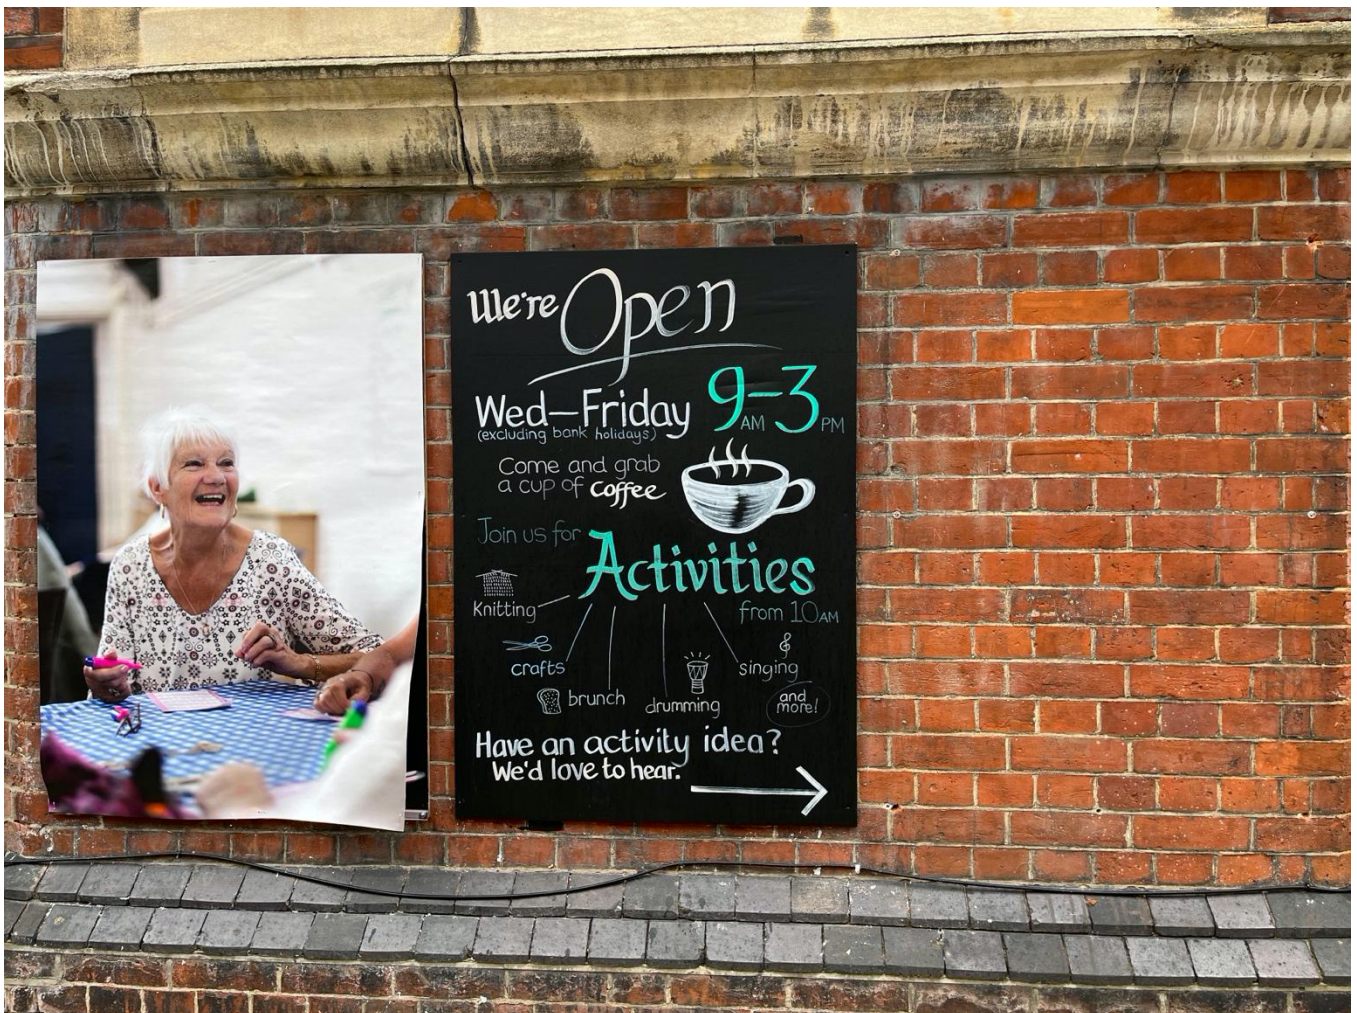 We're Open
Wed–Friday 9AM–3PM
(excluding bank holidays)
Come and grab
a cup of coffee
Join us for Activities
from 10AM
Knitting
crafts
brunch
drumming
singing
and
more!
Have an activity idea?
We'd love to hear.